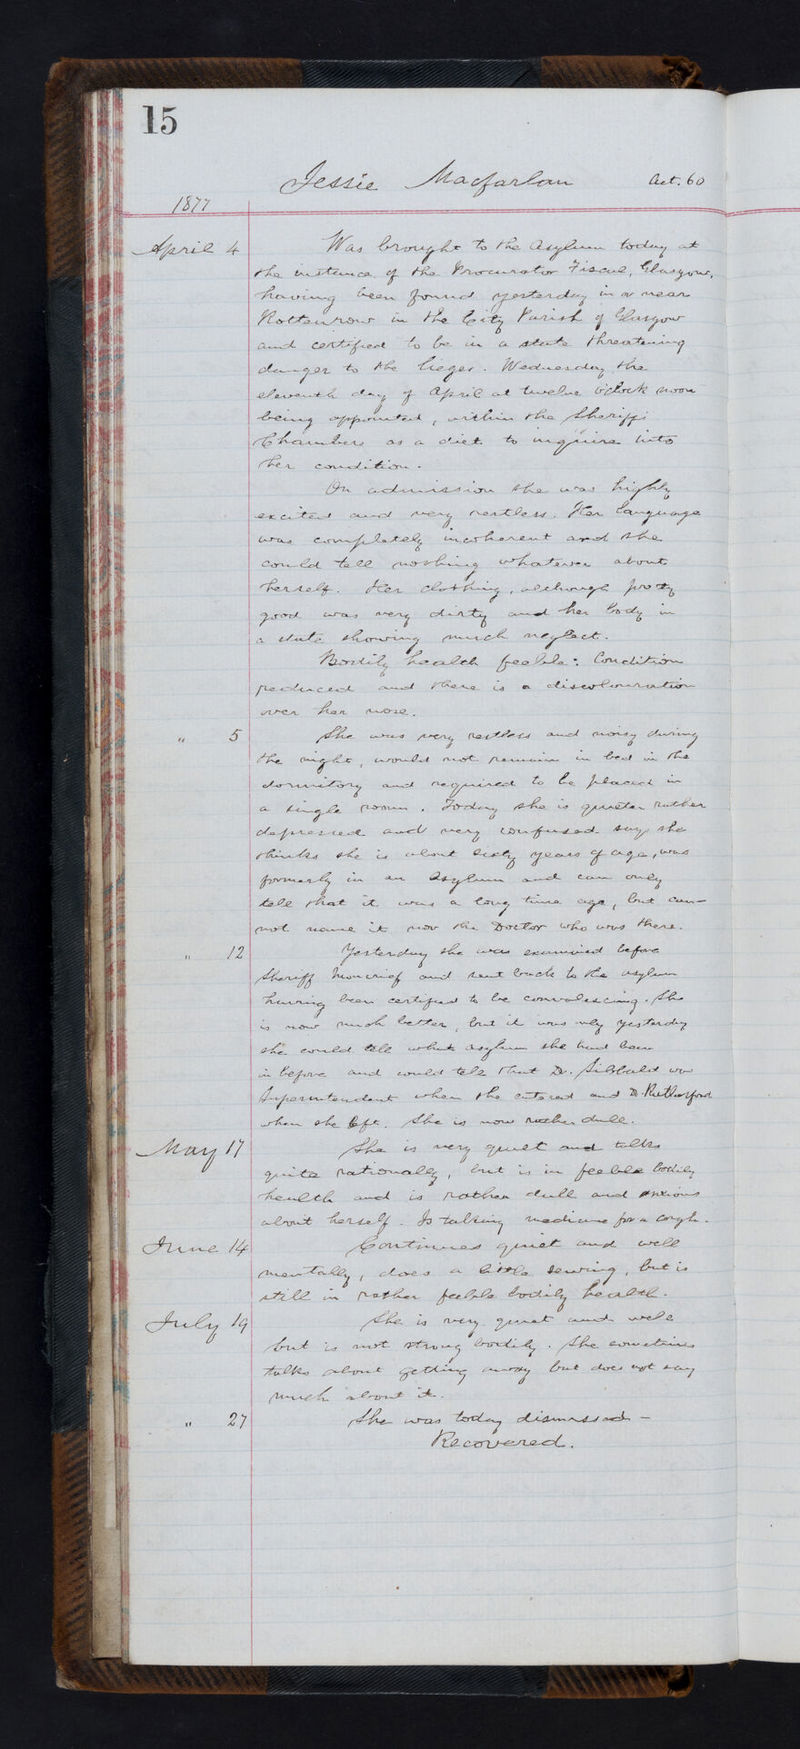 15
Jessie Macfarlan Aet. 60
1877
April 4 Was brought to the Asylum today at
the instance of the Procurator Fiscal, Glasgow,
having been found yesterday in or near
Rottenrow in the City Parish of Glasgow
and certified to be in a state threatening
danger to the lieges. Wednesday the
eleventh day of April at twelve o'clock noon
being appointed, within the Sheriff
Chambers as a diet to inquire into
her condition.
On admission she was highly
excited and very restless. Her language
was completely incoherent and she
could tell nothing whatever about
herself. Her clothing, although pretty
good was very dirty and her body in
a state showing much neglect.
Bodily health feeble: Condition
reduced and there is a discolouration
over her nose.
" 5 She was very restless and noisy during
the night, would not remain in bed in the
dormitory and required to be placed in
a single room. Today she is quieter rather
depressed and very confused says she
thinks she is about sixty years of age, was
formerly in an Asylum and can only
tell that it was a long time ago, but can-
not name it nor the Doctor who was there.
" 12 Yesterday she was examined before
Sheriff Moncrief and sent back to the asylum
having been certified to be convalescing. She
is now much better, but it was only yesterday
she could tell what asylum she had been
in before and could tell that Dr. Sibbald was
Superintendent when she entered and Dr. Rutherford
when she left. She is now rather dull.
May 17 She is very quiet and talks
quite rationally, but is in feeble bodily
health and is rather dull and anxious
about herself. Is taking medicine for a cough.
June 14 Continues quiet and well
mentally, does a little sewing, but is
still in rather feeble bodily health.
July 19 She is very quiet and well
but is not strong bodily. She sometimes
talks about getting away but does not say
much about it.
" 27 She was today dismissed -
Recovered.